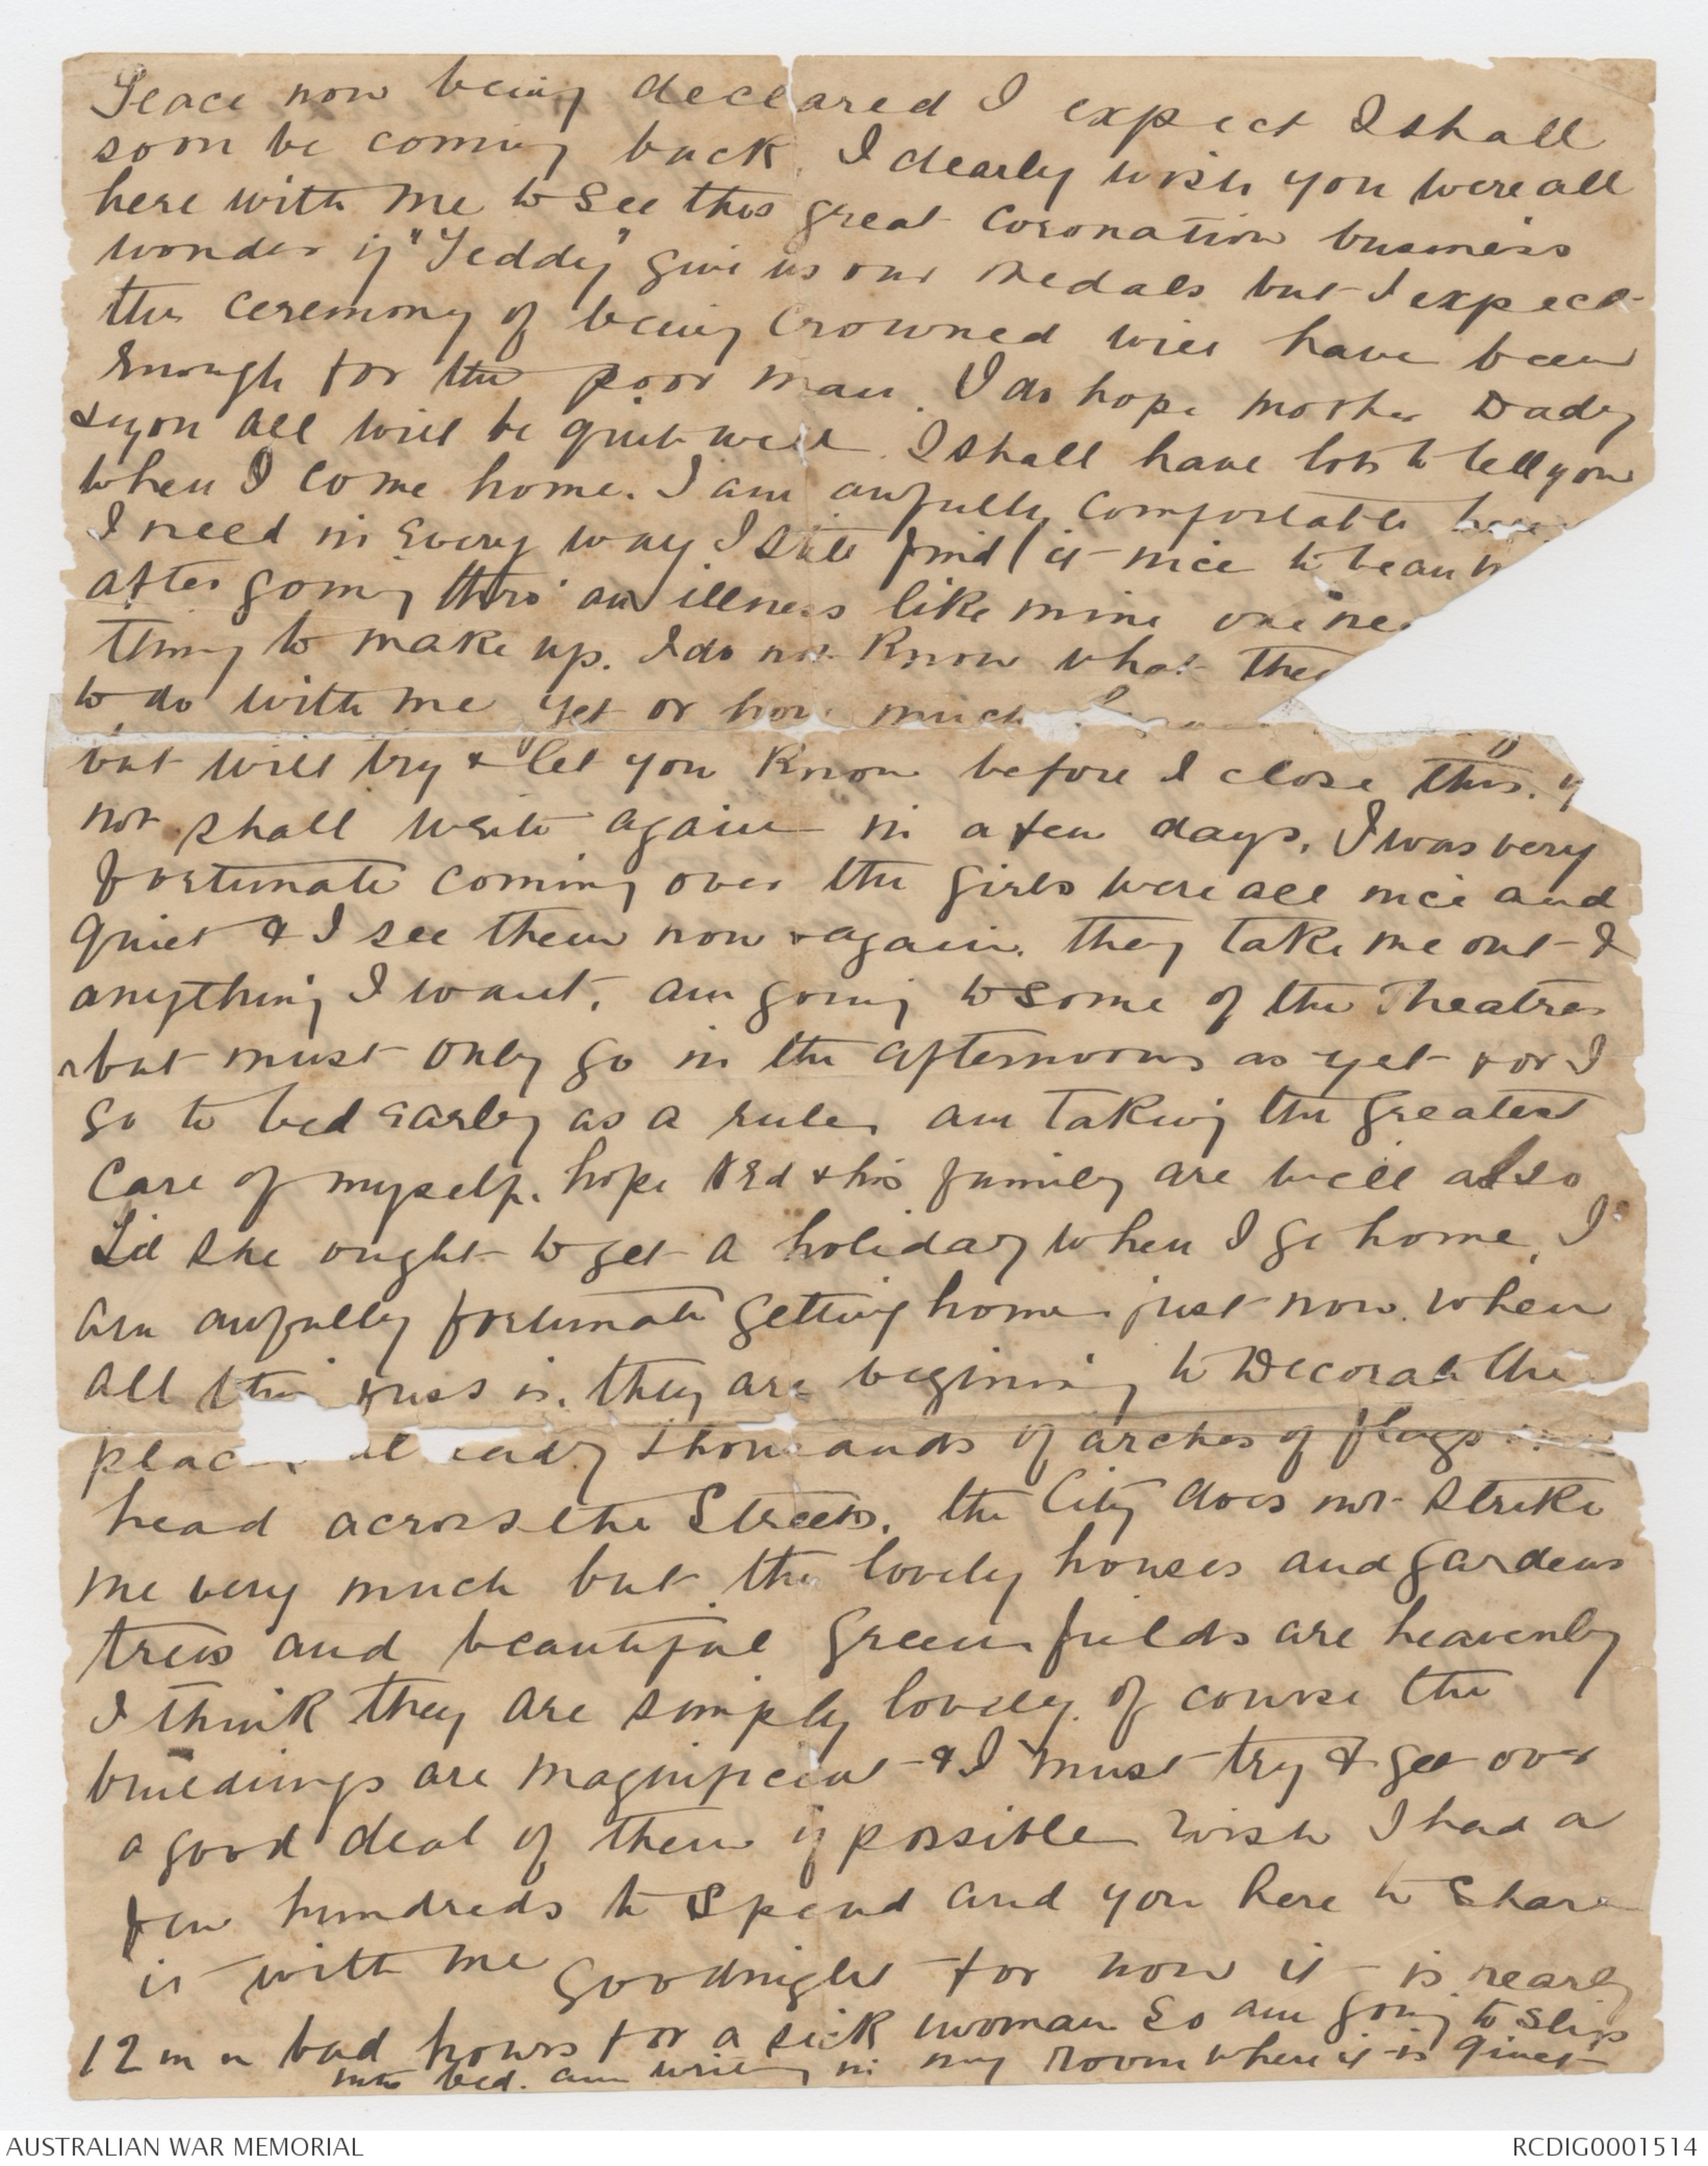 Peace now being declared I expect I shall
soon be coming back. I dearly wish you were all
here with me to see this great Coronation business
wonder if "Teddy" give us our Medals but I expect
the ceremony of being Crowned will have been
Enough for the poor man. I do hope mother Dady
& you all will be quite well. I shall have lots to tell you
when I come home. I am awfully comfortable
I need in Every way I still find it nice to be an
after going thro' an illness like mine one
thing to make up. I do not Know what
to do with me yet or how much
but will try & let you Know before I close this. if
not shall write again in a few days. I was very
fortunate coming over the girls were all nice and
quiet & I see them now & again. they take me out I
anything I want. am going to some of the Theatres
but must only go in the afternoons as yet for I
go to bed Early as a rule, am taking the greatest
Care of myself. hope Ned & his family are well also
Lil she ought to get a holiday when I go home, I
am awfully fortunate getting home just now. when
all this fuss is. they are begining to Decorate the
already thousands of arches of flags
head across the Streets. the City does not strike
me very much but the lovely houses and gardens
trees and beautiful green fields are heavenly
I think they are simply lovely. of course the
buildings are magnificent & I must try & get over
a good deal of them if possible Wish I had a
few hundreds to Spend and you here to Share
it with me Goodnight for now it is nearly
12 bad hours for a sick woman So am going to slip
into bed. am writing in my Room where it is quiet
AUSTRALIAN WAR MEMORIAL
RCDIG0001514